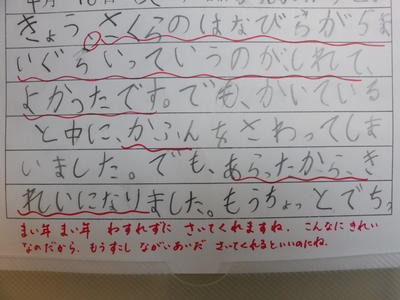 4月10日
きょう、さくらのはなびらがらま
いぐらいっていうのがしれて、
よかったです。でも、かいている
と中に、かふんをさわってしま
いました。でも、あらったから、き
れいになりました。もうちょっとでちっ
まい年 まい年 わすれずに さいてくれますね。こんなに きれい
なのだから、もうすこし ながいあいだ さいてくれるといいのにね。